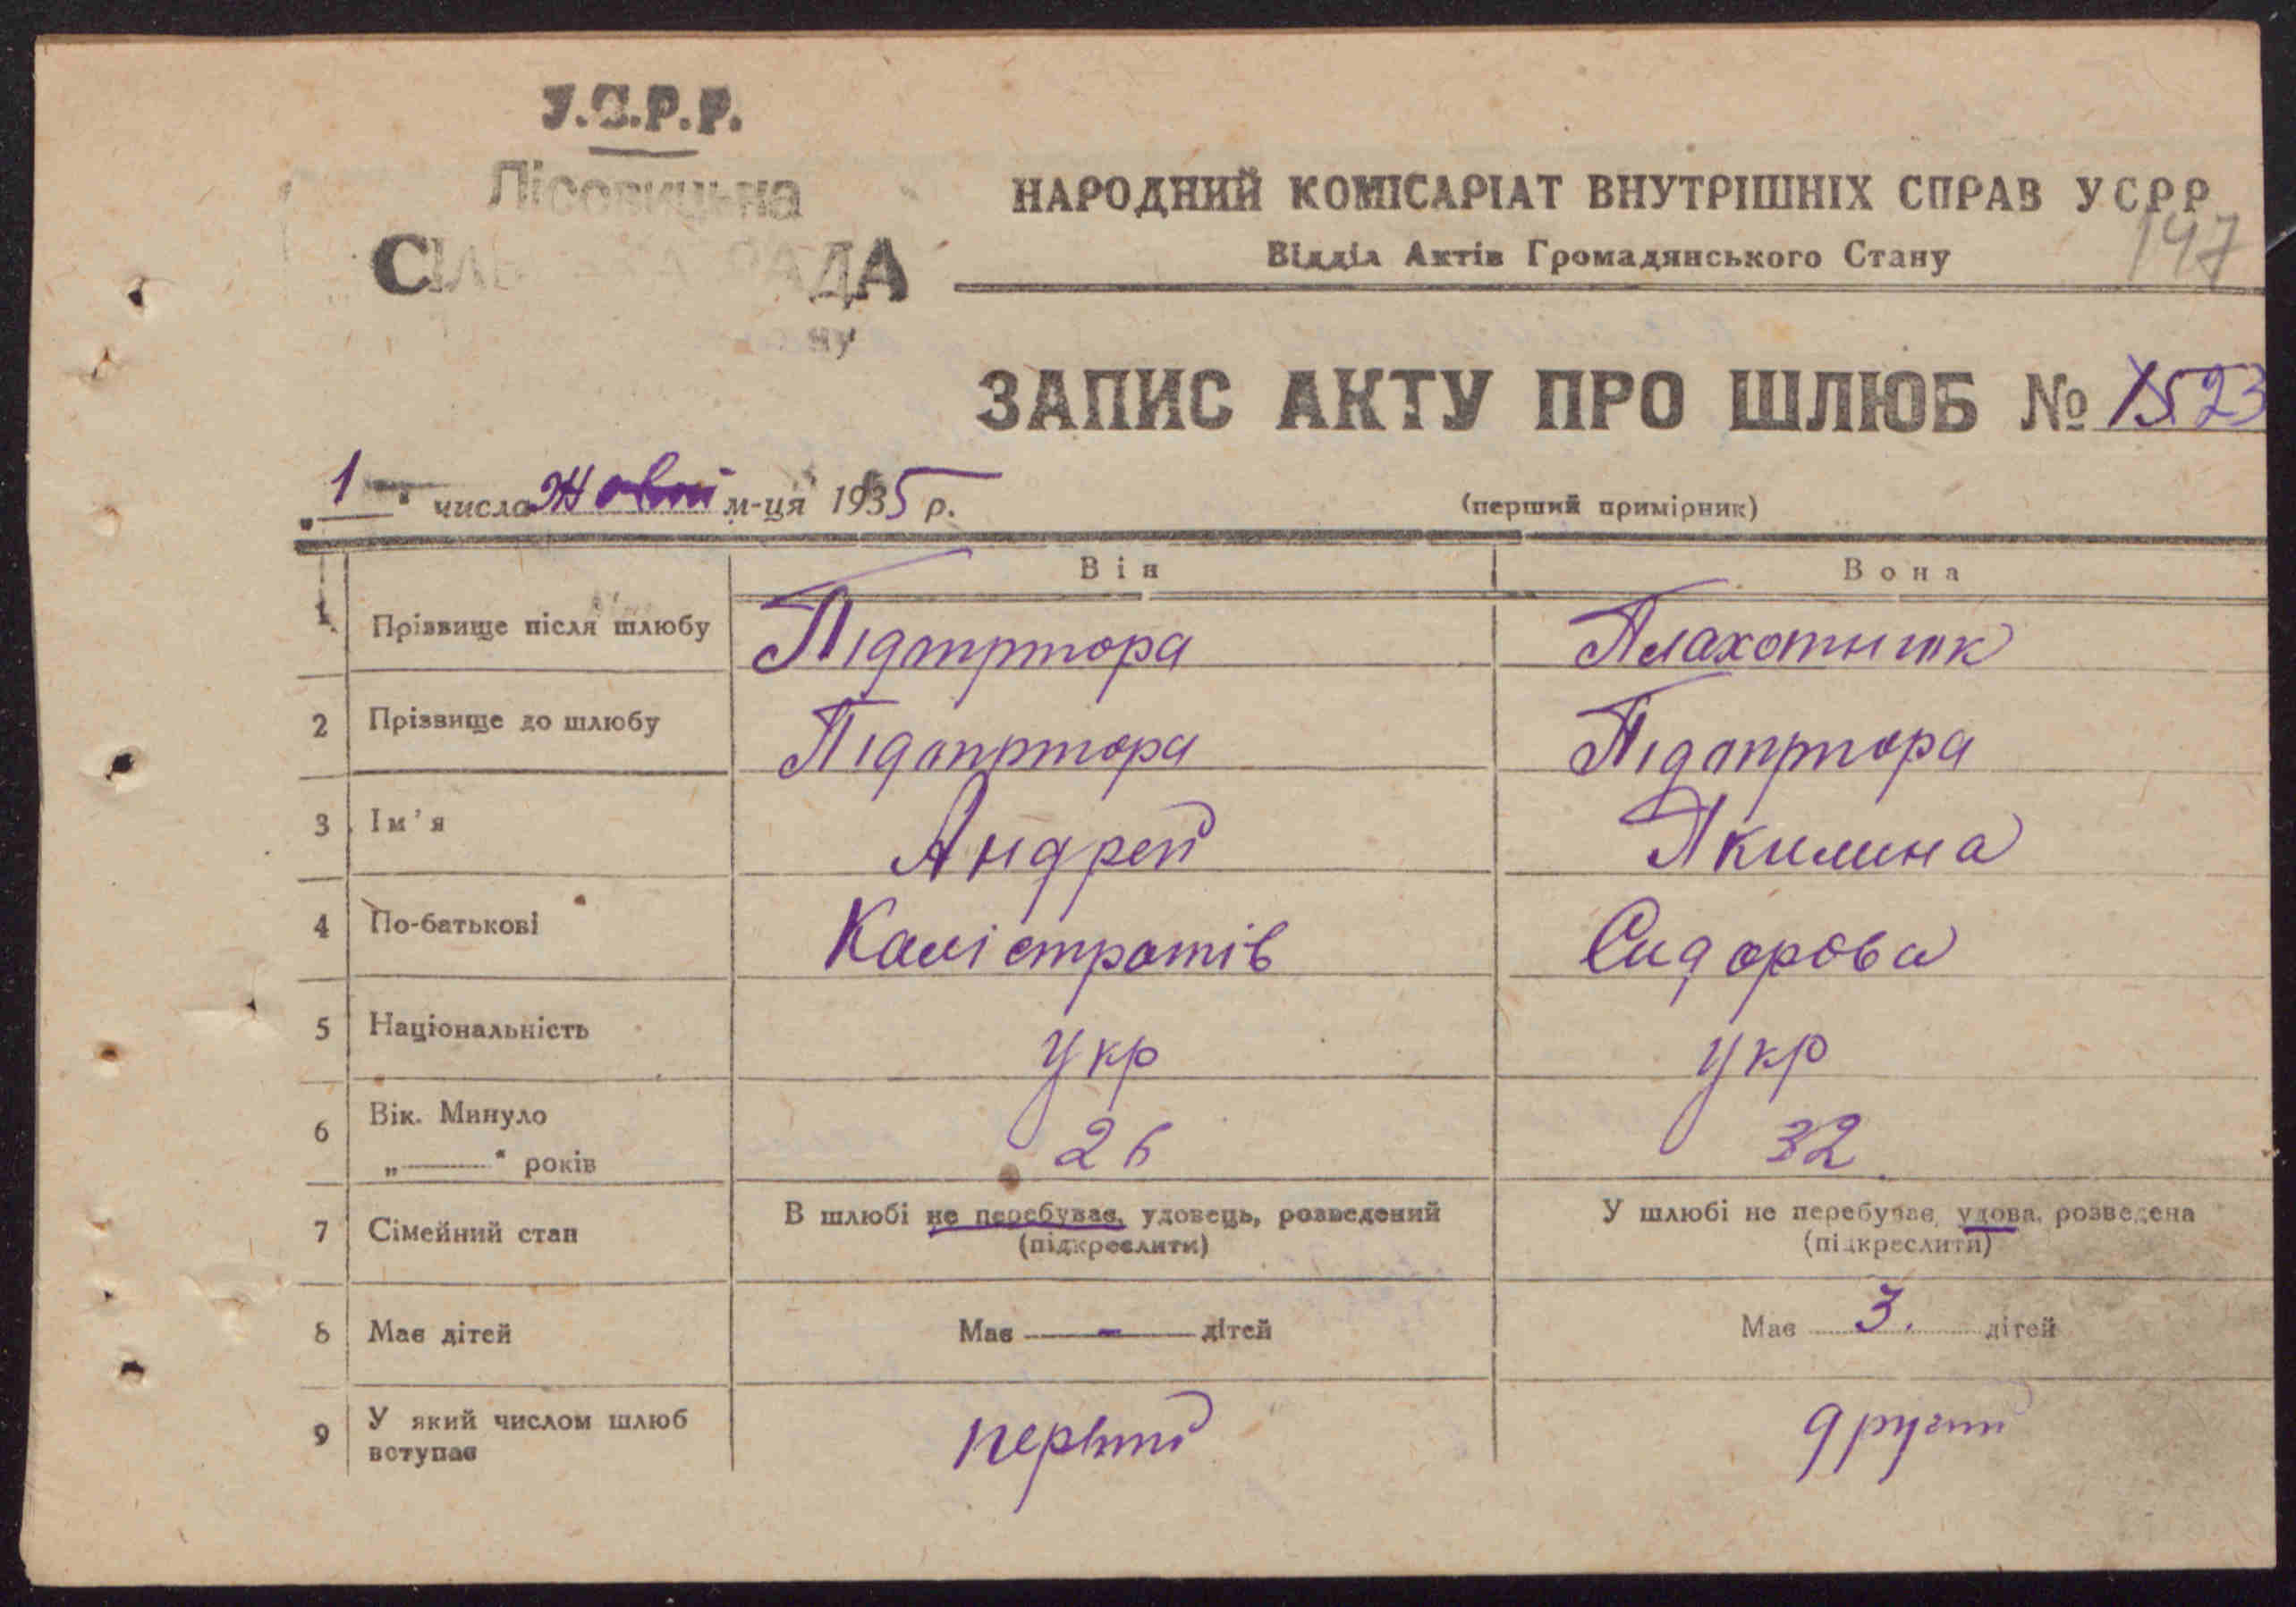 У.С.Р.Р.
Лісовицьна
СІЛЬ РАДА
НАРОДНИЙ КОМІСАРІАТ ВНУТРІШНІХ СПРАВ УСРР
147
Відділ Актів Громадянського Стану
ЗАПИС АКТУ ПРО ШЛЮБ № 1523
„1“ числа м-ця 1935 р.
(перший примірник)
Він Вона
1 Прізвище після шлюбу Підопртора Плахотник
2 Прізвище до шлюбу Підопртора Підопртора
3 Ім’я Андрей Якилина
4 По-батькові Калістратів Сидорова
5 Національність Укр Укр
6 Вік. Минуло
„———“ років 26 32
7 Сімейний стан В шлюбі не перебуває, удовець, розведений У шлюбі не перебуває, удова, розведена
(підкреслити) (підкреслити)
8 Має дітей Має - дітей Має 3. дітей
9 У який числом шлюб
вступає перший другий